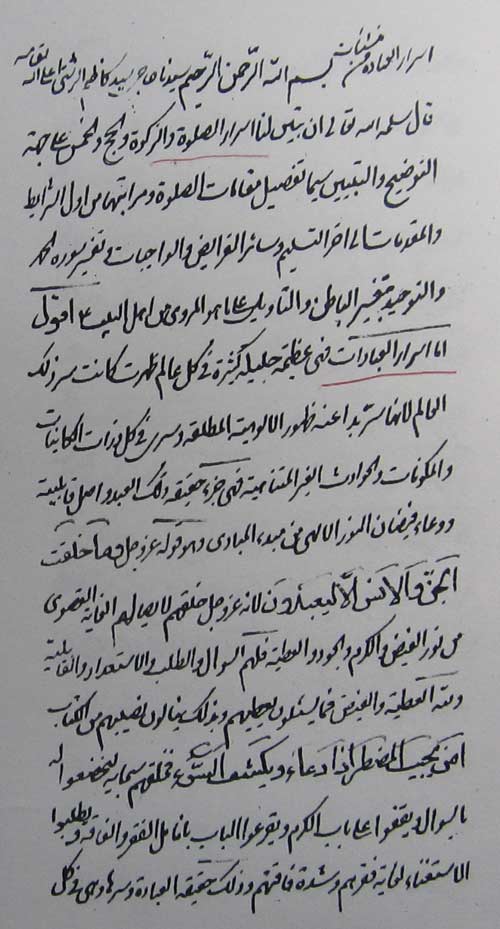 اسرار العبادة من منشئات
بسم الله الرحمن الرحيم سيدنا حاجى سيد كاظم الرشتى
قال سلمه الله تعالى ان يبين لنا اسرار الصلوة والزكوة والحج والخمس على جهة
التوضيح والتبيين سيما تفصيل مقامات الصلوة ومراتبها من اول الشرايط
والمقدمات الى اخر التسليم وسائر الفرايض والواجبات وتفسير سورة الحمد
والتوحيد بتفسير الباطن والتاويل على ما هو المروى من اهل البيت ع اقول
اما اسرار العبادات فهى عظيمة جليلة كثيرة فى كل عالم ظهرت كانت سر ذلك
العالم لانها سر بدا عنه ظهور الالوهية المطلقة وسرى فى كل ذرات الكاينات
والمكونات والحوادث الغير المتناهية فهى جزء حقيقة ذلك العبد واصل قابلية
ووعاء فيضان النور الالهى من مبدء المبادى وهو قوله عز وجل وما خلقت
الجن والانس الا ليعبدون لانه عز وجل خلقهم لايصالهم الغاية القصوى
من نور الفيض والكرم والجود والعطية فلهم السوال والطلب والاستعداد والقابلية
ومنه العطية والفيض فما يسئلون يعطيهم وبذلك ينالون نصيبهم من الكتاب
امن يجيب المضطر اذا دعاه ويكشف السوء فخلقهم سبحانه ليخضعوا له
بالسوال ويقفوا على باب الكرم ويقرعوا الباب بانامل الفقر والفاقة ويطلبوا
الاستغناء لغاية فقرهم وشدة فاقتهم وذلك حقيقة العبادة وسرها وهى فى كل